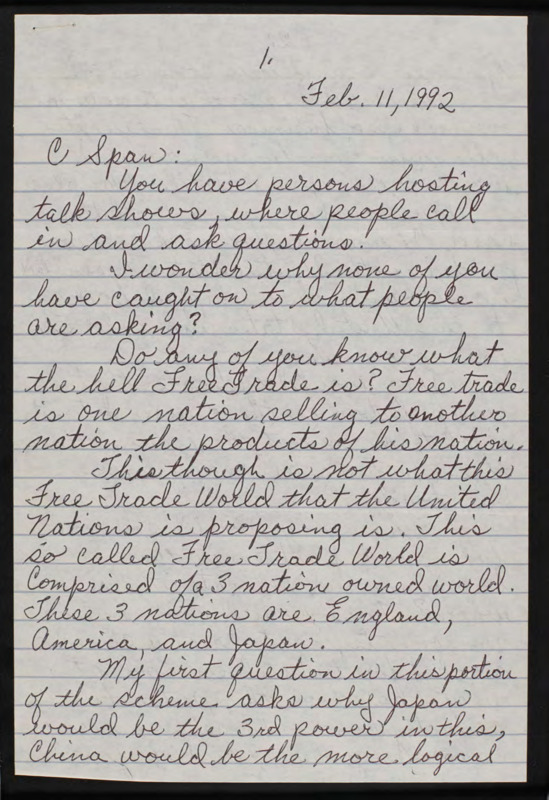 1.
Feb. 11, 1992
C Span:
You have persons hosting
talk shows, where people call
in and ask questions.
I wonder why none of you
have caught on to what people
are asking?
Do any of you know what
the hell Free Trade is? Free trade
is one nation selling to another
nation the products of his nation.
This though is not what this
Free Trade World that the United
Nations is proposing is. This
so called Free Trade World is
Comprised of a 3 nation owned world.
These 3 nations are England,
America, and Japan.
My first question in this portion
of the scheme asks why Japan
would be the 3rd power in this,
China would be the more logical